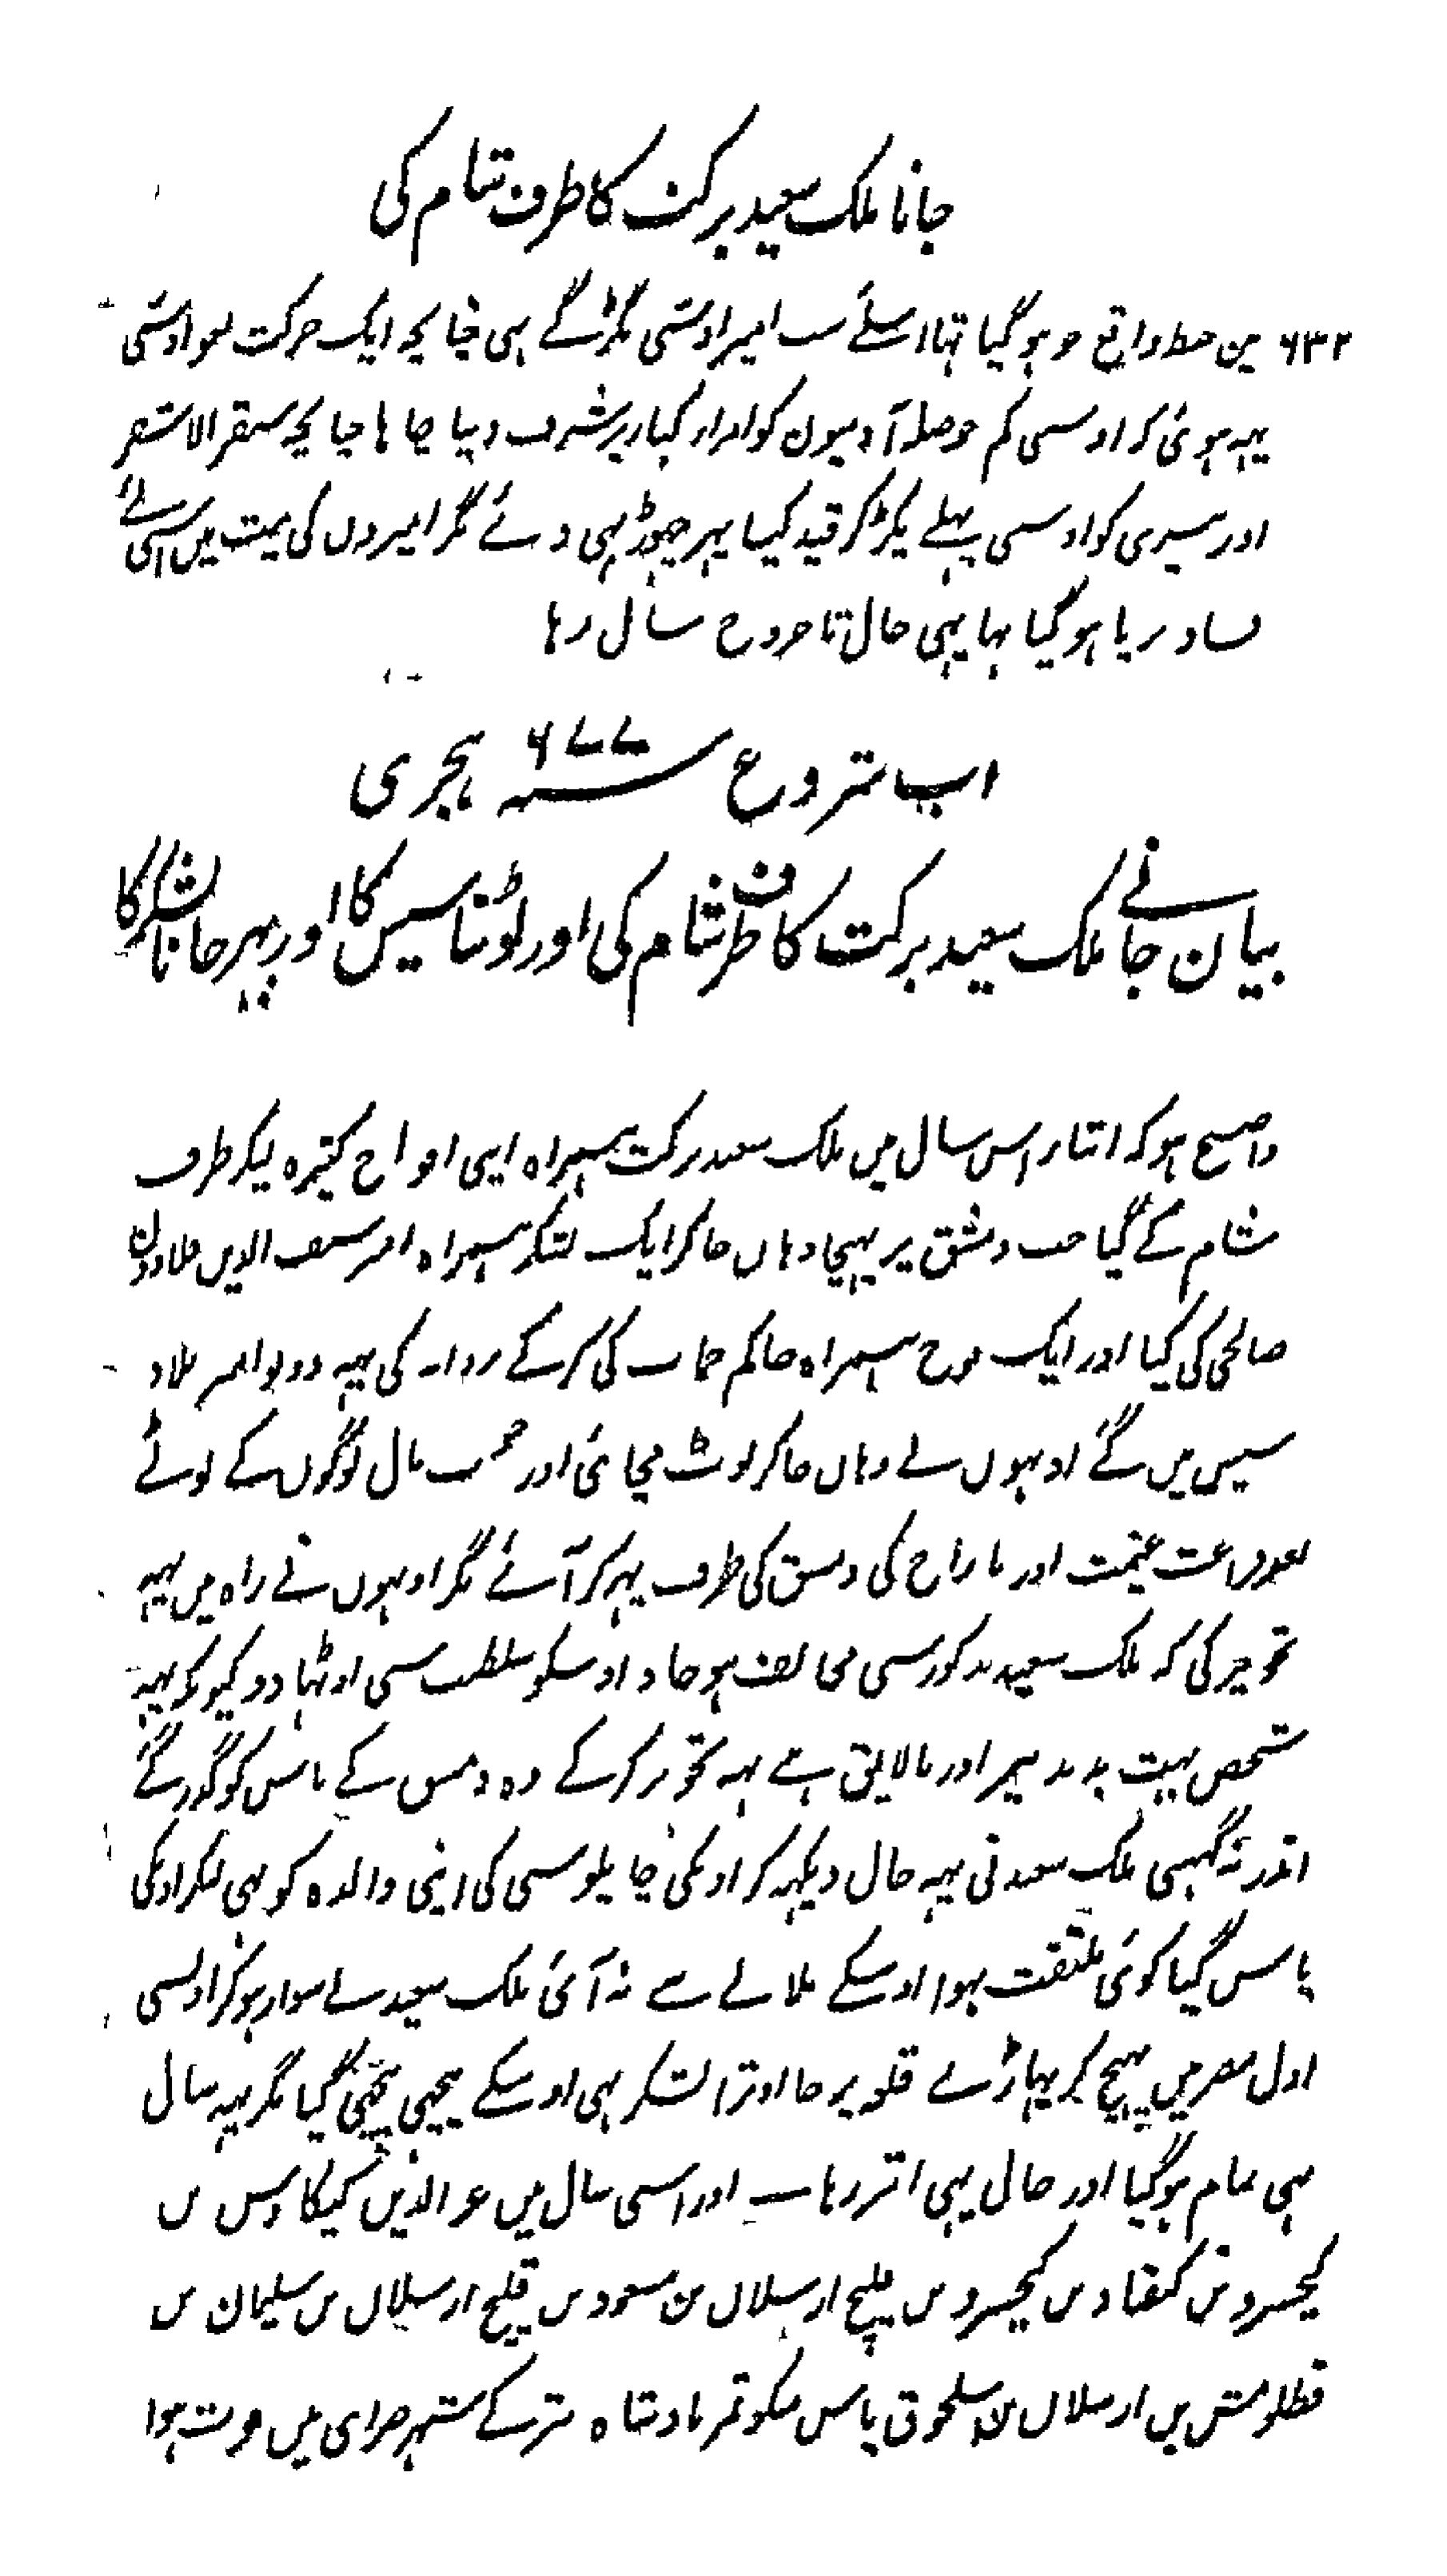 جانا ملک سعید برکت کا طرف شام کی
۶۳۲ مین خبط واقع ہو گیا تہا اسلئے سب امیر اوسی بگڑ گے ہی چنانچہ ایک حرکت لغو اوسی
یہہ ہوئی کہ اوسی کم حوصلہ آدمیون کو امراء کبار پر شرف دینا چاہا چنانچہ سنقر الاشقر
اور بیسری کو اوسی پہلے پکڑ کر قید کیا پہر چہوڑ بہی دئے مگر امیروں کی نیت میں اسی لئے
فساد بریا ہو گیا تہا یہی حال تا خروج سال رہا
اب شروع سنہ ۶۷۷ ہجری
بیان جانے ملک سعید برکت کا طرف شام کی اور لوٹنا سیس کا اور پہر جانا لشکر کا
واضح ہو کہ اثنار اس سال میں ملک سعید برکت ہمراہ اپنی افواج کثیرہ لیکر طرف
شام کے گیا جب دمشق پر پہنچا وہاں جا کر ایک لشکر ہمراہ امیر سیف الدین قلاوون
صالحی کی کیا اور ایک فوج ہمراہ حاکم حماۃ کی کر کے روانہ کی یہہ دونو امیر بلاد
سیس میں گے اونہوں نے وہاں جا کر لوٹ مچائی اور خوب مال لوگوں کے لوٹے
بعد فراغت غنیمت اور تاراج کی دمشق کی طرف پہر کر آئے مگر اونہوں نے راہ میں یہہ
تجویز کی کہ ملک سعید مذکور سی مخالف ہو جاو اوسکو سلطنت سی اوٹہا دو کیونکہ یہہ
شخص بہت بد تدبیر اور نالایق ہے یہہ تجویز کر کے وہ دمشق کے پاس کو گذر گے
اندر نہ گہسی ملک سعید نی یہہ حال دیکہہ کر اونکی چاپلوسی کی اپنی والدہ کو بہی لیکر اونکی
پاس گیا کوئی ملتفت نہوا اوسکے بلانے سے نہ آئی ملک سعید نے سوار ہو کر اونسی
اول مصر میں پہنچ کر پہاڑ کے قلعہ پر جا اوترا لشکر بہی اوسکے پیچہی پیچہی گیا مگر یہہ سال
بہی تمام ہو گیا اور حال یہی ابتر رہا اور اسی سال میں عز الدین کیکاوس بن
کیخسرو بن کیقباد بن کیخسرو بن قلیج ارسلان بن مسعود بن قلیج ارسلان بن سلیمان بن
قطلومش بن ارسلان بن سلجوق پاس منکوتمر بادشاہ تتر کے شہر صرای میں فوت ہوا